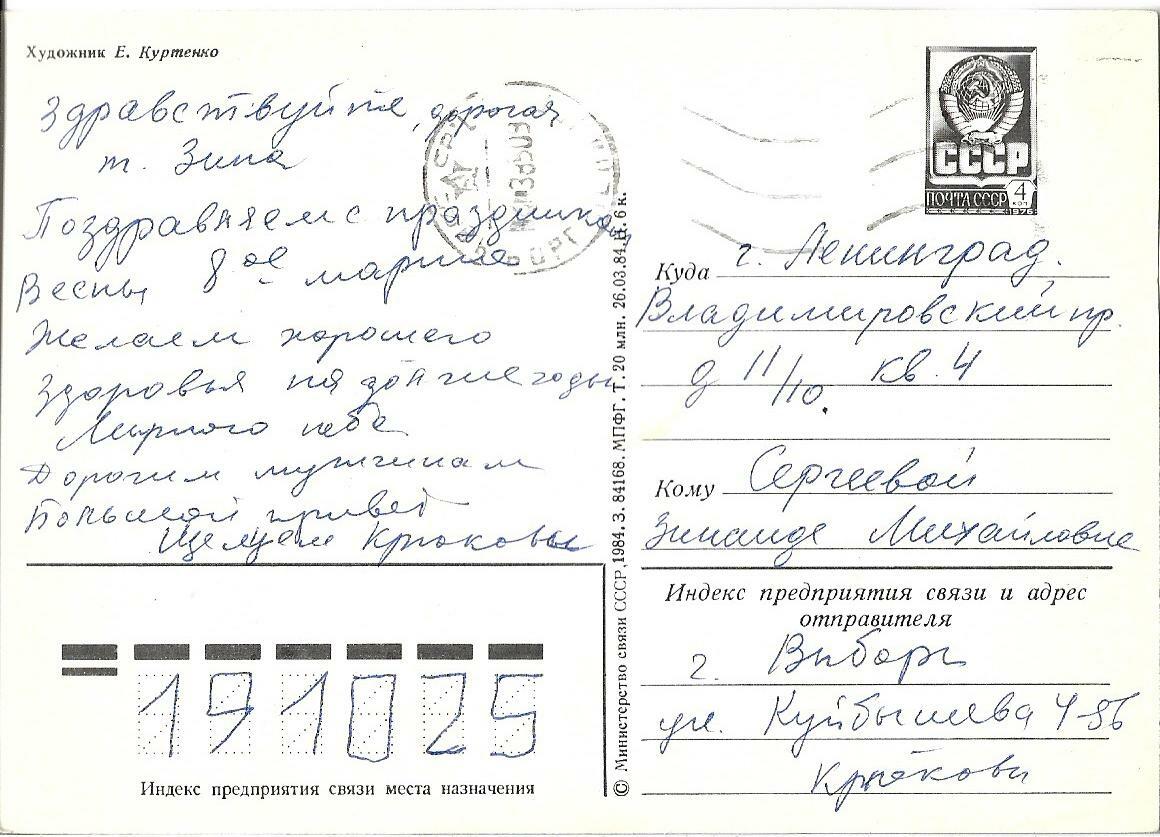 Художник Е. Куртенко
Здравствуйте, дорогая
т. Зина
Поздравляем с праздником
Весны 8ое марта
Желаем хорошего
здоровья на долгие годы
Мирного неба
Дорогим мужчинам
Большой привет
Целуем Крюковы
СССР
ПОЧТА СССР
4
коп
1976
Куда г. Ленинград.
Владимировский пр.
д 11/10. кв. 4
Кому Сергеевой
Зинаиде Михайловне
Индекс предприятия связи и адрес
отправителя
г. Выборг
ул. Куйбышева 4-56
Крюковы
© Министерство связи СССР, 1984. З. 84168. МПФГ. Т. 20 млн. 26.03.84. Ц. 6 к.
191025
Индекс предприятия связи места назначения